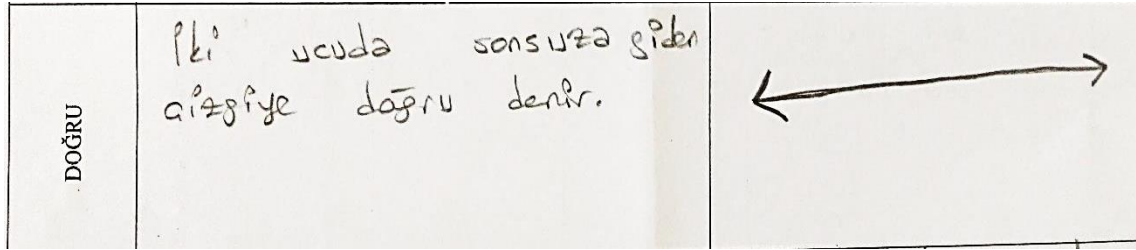 DOĞRU
iki ucuda sonsuza giden
çizgiye doğru denir.